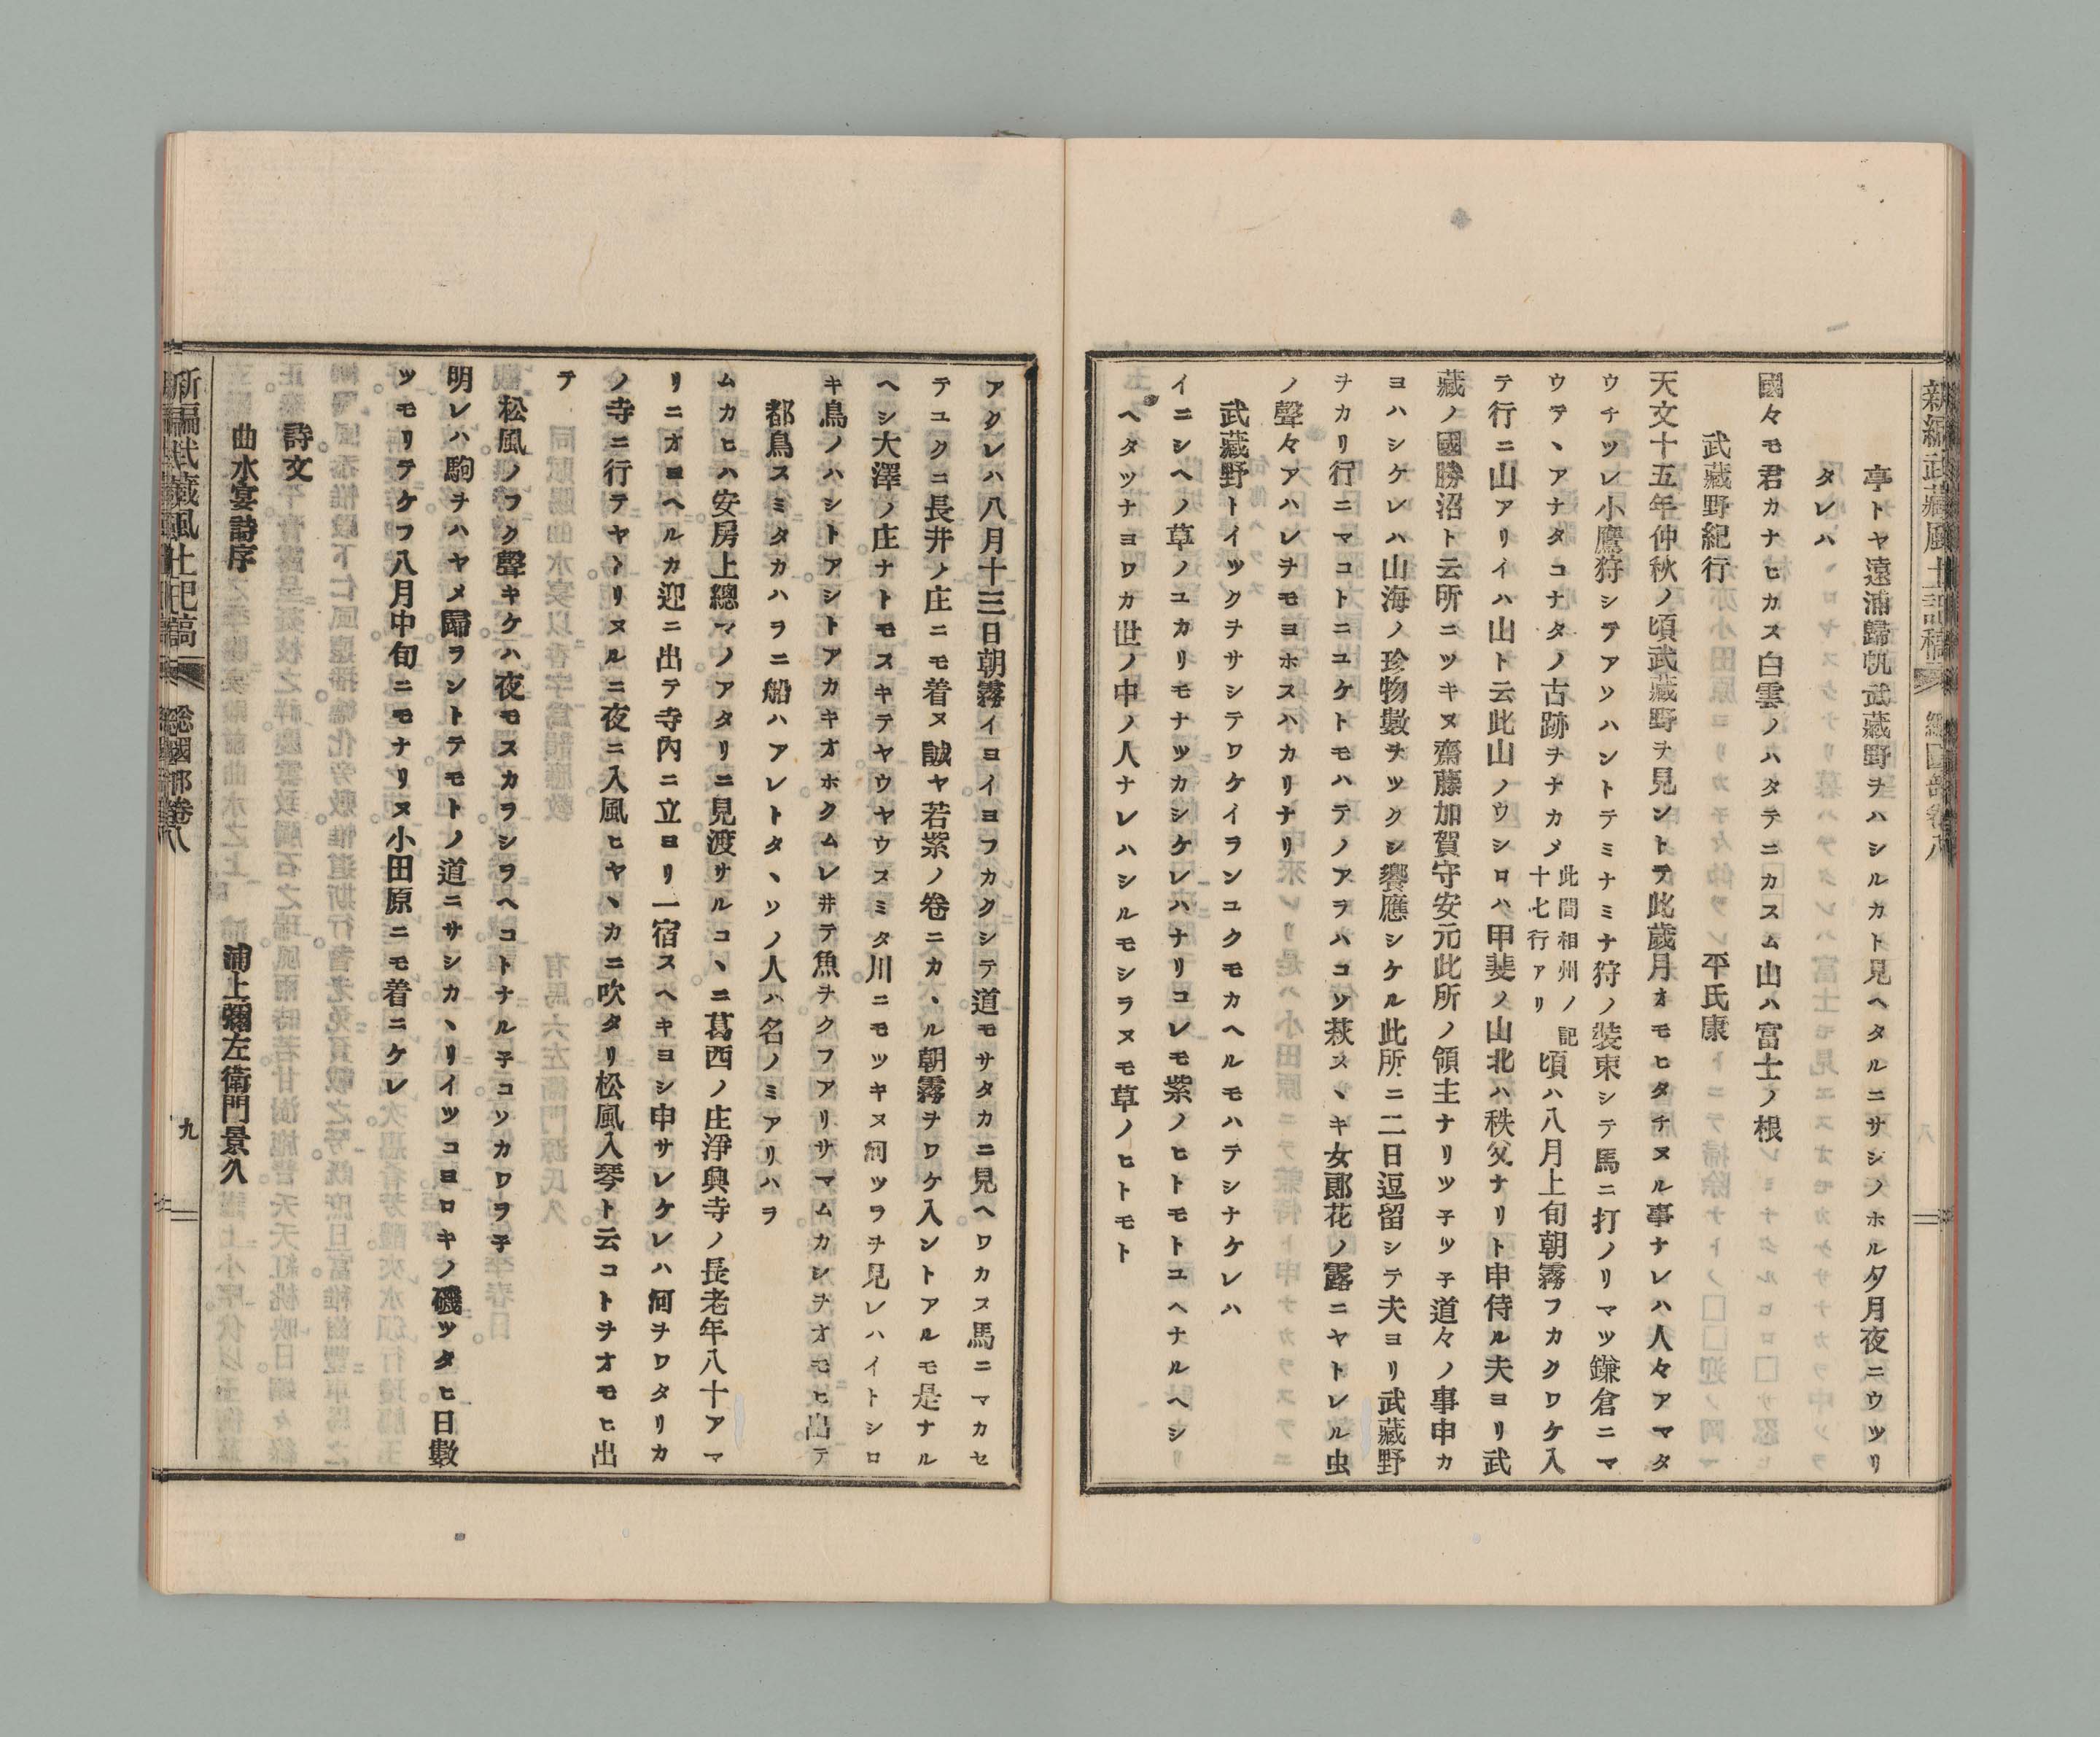 新編武藏風土記稿 總國部卷八
亭トヤ遠浦歸帆武藏野ヲハシルカト見ヘタルニサシノホル夕月夜ニウツリ
タレハ
國々モ君カナヒカス白雲ノハタテニカスム山ハ富士ノ根
武藏野紀行 平氏康
天文十五年仲秋ノ頃武藏野ヲ見ントテ此歲月オモヒタチヌル事ナレハ人々アマタ
ウチツレ小鷹狩シテアソハントテミナミナ狩ノ裝束シテ馬ニ打ノリマツ鎌倉ニマ
ウテヽアナタコナタノ古跡ヲナカメ此間相州ノ記十七行アリ頃ハ八月上旬朝霧フカクワケ入
テ行ニ山アリイハ山ト云此山ノウシロハ甲斐ノ山北ハ秩父ナリト申侍ル夫ヨリ武
藏ノ國勝沼ト云所ニツキヌ齋藤加賀守安元此所ノ領主ナリツ子ツ子道々ノ事申カ
ヨハシケレハ山海ノ珍物數ヲツクシ饗應シケル此所ニ二日逗留シテ夫ヨリ武藏野
ヲカリ行ニマコトニユケトモハテノアラハコソ萩スヽキ女郞花ノ露ニヤトレル虫
ノ聲々アハレヲモヨホスハカリナリ
武藏野トイツクヲサシテワケイランユクモカヘルモハテシナケレハ
イニシヘノ草ノユカリモナツカシケレハナリコレモ紫ノヒトモトユヘナルヘシリ
ヘタツナヨワカ世ノ中ノ人ナレハシルモシラヌモ草ノヒトモト
アクレハ八月十三日朝霧イヨイヨフカクシテ道モサタカニ見ヘワカス馬ニマカセ
テユクニ長井ノ庄ニモ着ヌ誠ヤ若紫ノ卷ニカヽル朝霧ヲワケ入ントアルモ是ナル
ヘシ大澤ノ庄ナトモスキテヤウヤウスミタ川ニモツキヌ河ツラヲ見レハイトシロ
キ鳥ノハシトアシトアカキオホクムレ井テ魚ヲクフアリサマムカシヲオモヒ出テ
都鳥スミタカハラニ船ハアレトタヽソノ人ハ名ノミアリハラ
ムカヒハ安房上總マノアタリニ見渡サルコヽニ葛西ノ庄淨興寺ノ長老年八十アマ
リニオヨヘルカ迎ニ出テ寺內ニ立ヨリ一宿スヘキヨシ申サレケレハ河ヲワタリカ
ノ寺ニ行テヤトリヌルニ夜ニ入風ヒヤヽカニ吹タリ松風入琴ト云コトヲオモヒ出
テ
松風ノフク聲キケハ夜モスカラシラヘコトナル子コソカワラ子
明レハ駒ヲハヤメ歸ラントテモトノ道ニサシカヽリイツコヨロキノ磯ツタヒ日數
ツモリテケフ八月中旬ニモナリヌ小田原ニモ着ニケレ
詩文
曲水宴詩序 浦上彌左衛門景久
新編武藏風土記稿 總國部卷八 九